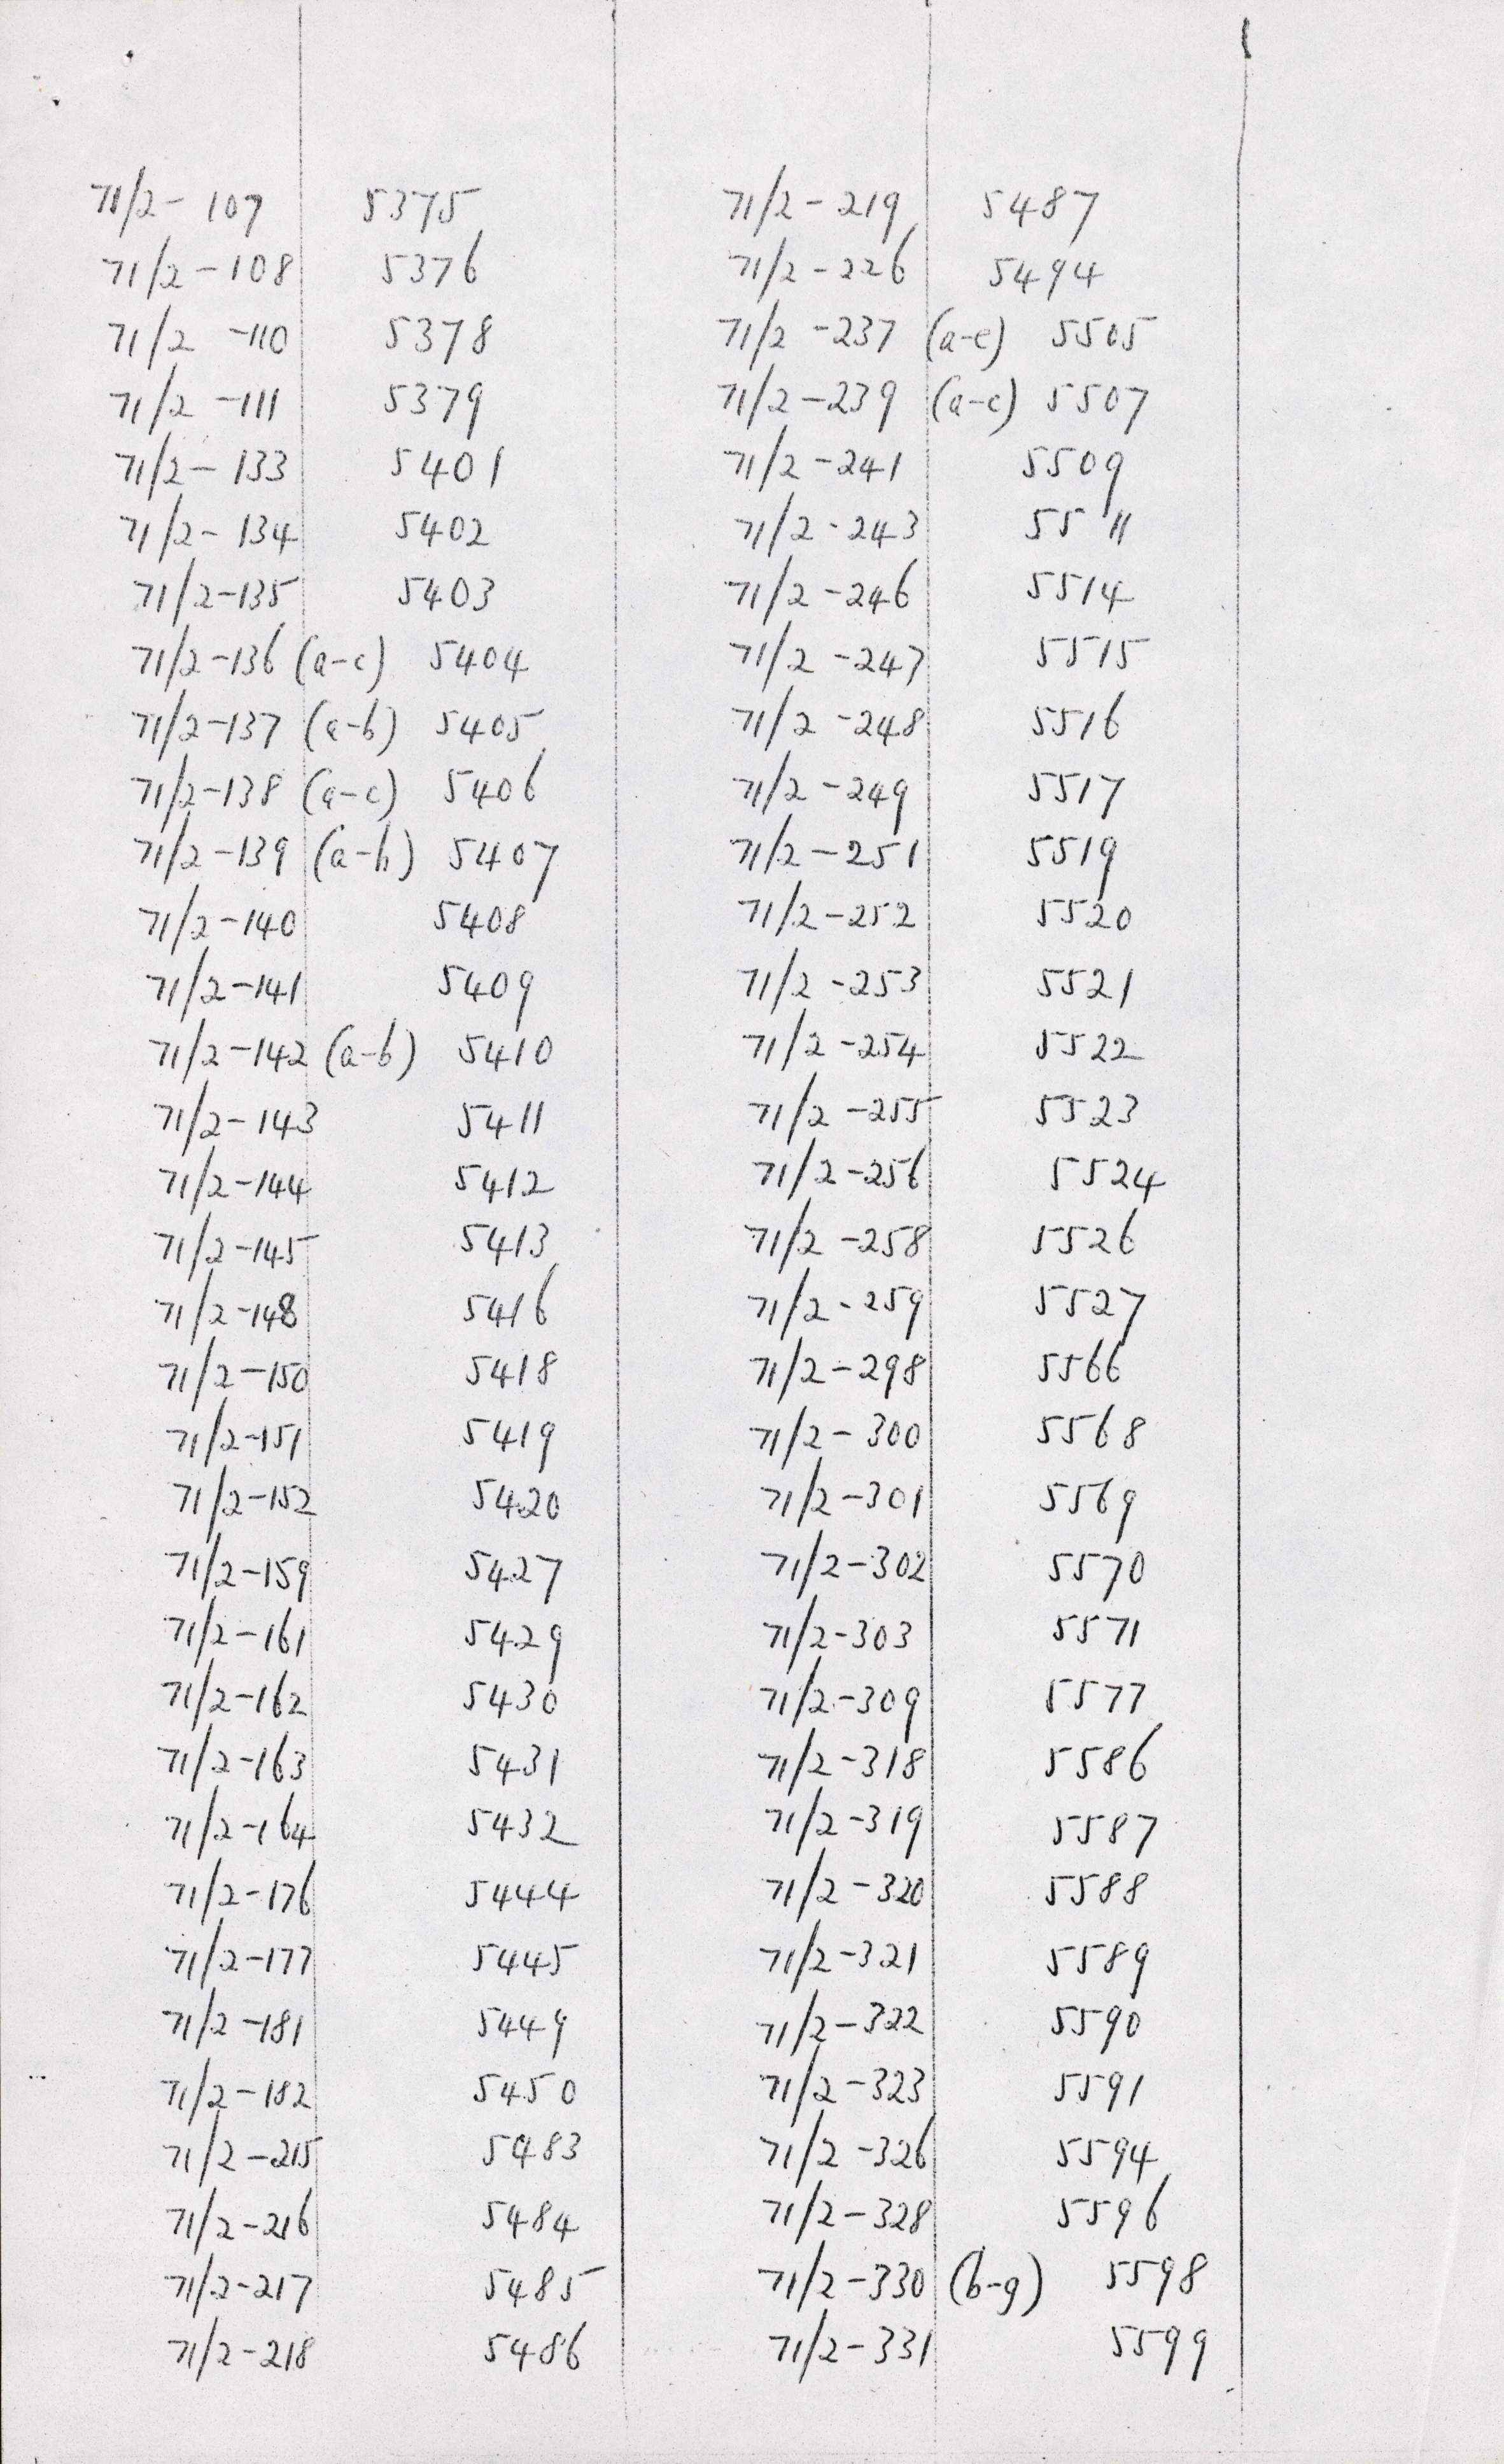 71/2 - 107 5375
71/2 - 108 5376
71/2 - 110 5378
71/2 - 111 5379
71/2 - 133 5401
71/2 - 134 5402
71/2 - 135 5403
71/2 - 136 (a-c) 5404
71/2 - 137 (a-b) 5405
71/2 - 138 (a-c) 5406
71/2 - 139 (a-h) 5407
71/2 - 140 5408
71/2 - 141 5409
71/2 - 142 (a-b) 5410
71/2 - 143 5411
71/2 - 144 5412
71/2 - 145 5413
71/2 - 148 5416
71/2 - 150 5418
71/2 - 151 5419
71/2 - 152 5420
71/2 - 159 5427
71/2 - 161 5429
71/2 - 162 5430
71/2 - 163 5431
71/2 - 164 5432
71/2 - 176 5444
71/2 - 177 5445
71/2 - 181 5449
71/2 - 182 5450
71/2 - 215 5483
71/2 - 216 5484
71/2 - 217 5485
71/2 - 218 5486
71/2 - 219 5487
71/2 - 226 5494
71/2 - 237 (a-e) 5505
71/2 - 239 (a-c) 5507
71/2 - 241 5509
71/2 - 243 5511
71/2 - 246 5514
71/2 - 247 5515
71/2 - 248 5516
71/2 - 249 5517
71/2 - 251 5519
71/2 - 252 5520
71/2 - 253 5521
71/2 - 254 5522
71/2 - 255 5523
71/2 - 256 5524
71/2 - 258 5526
71/2 - 259 5527
71/2 - 298 5566
71/2 - 300 5568
71/2 - 301 5569
71/2 - 302 5570
71/2 - 303 5571
71/2 - 309 5577
71/2 - 318 5586
71/2 - 319 5587
71/2 - 320 5588
71/2 - 321 5589
71/2 - 322 5590
71/2 - 323 5591
71/2 - 326 5594
71/2 - 328 5596
71/2 - 330 (b-g) 5598
71/2 - 331 5599